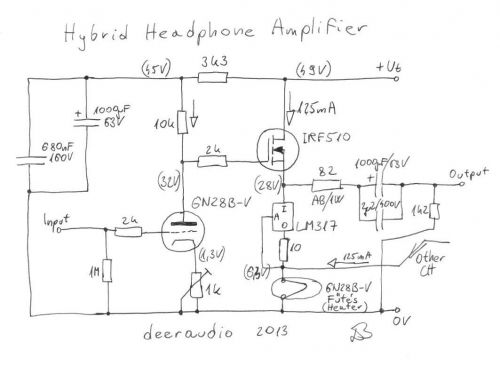 Hybrid Headphone Amplifier
(45V)
3k3
(49V)
+Ut
+
1000µF
63V
680nF
160V
10k
125mA
IRF510
2k
(32V)
(28V)
82
AB/1W
1000µF/63V
+
2µ2/400V
Output
6N28B-V
Input
2k
1M
(1,3V)
1k
A
I
O
LM317
10
1k2
125mA
Other
CH
6N28B-V
Fűtés
(Heater)
0V
deeraudio 2013